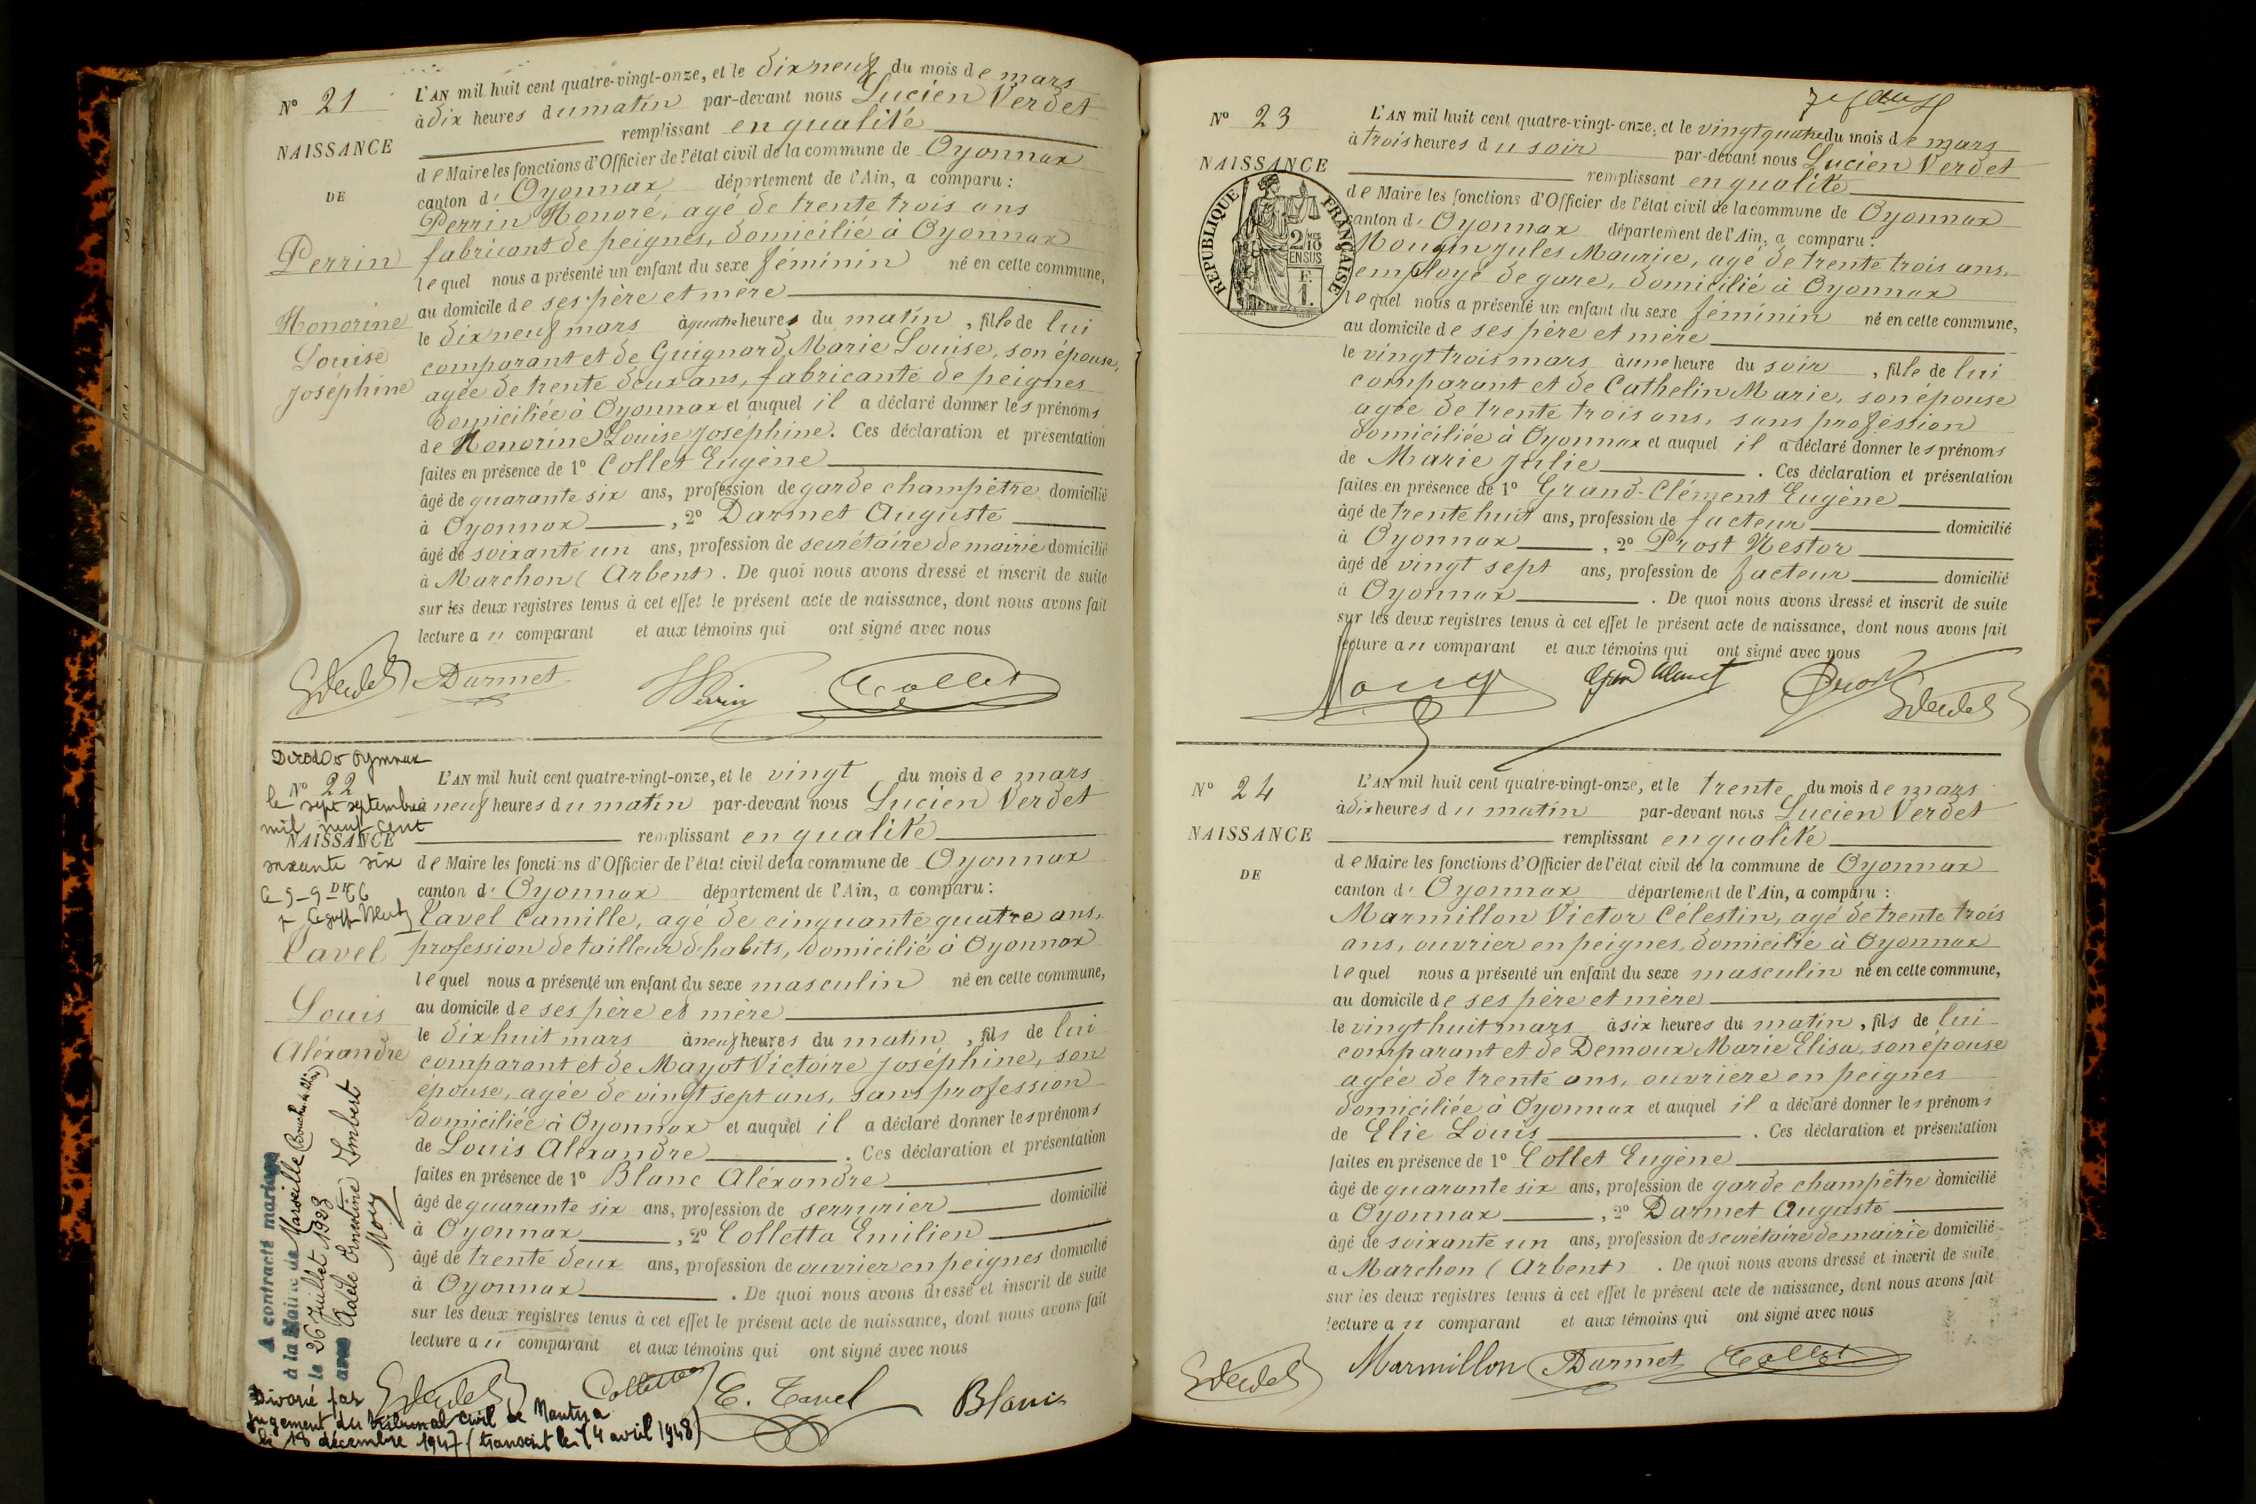 N° 21
NAISSANCE
DE
Perrin
Honorine
Louise
Joséphine
L'AN mil huit cent quatre-vingt-onze, et le dix neuf du mois de mars
à dix heures du matin par-devant nous Lucien Verdet
remplissant en qualité
de Maire les fonctions d'Officier de l'état civil de la commune de Oyonnax
canton d' Oyonnax département de l'Ain, a comparu :
Perrin Honoré, agé de trente trois ans
fabricant de peignes, domicilié à Oyonnax
lequel nous a présenté un enfant du sexe féminin né en cette commune,
au domicile de ses père et mère
le dix neuf mars à quatre heures du matin, fille de lui
comparant et de Guignard Marie Louise, son épouse,
agée de trente deux ans, fabricante de peignes
domiciliée à Oyonnax et auquel il a déclaré donner les prénoms
de Honorine Louise Joséphine. Ces déclaration et présentation
faites en présence de 1° Collet Eugène
âgé de quarante six ans, profession de garde champêtre domicilié
à Oyonnax, 2° Darmet Auguste
âgé de soixante un ans, profession de secrétaire de mairie domicilié
à Marchon (Arbent). De quoi nous avons dressé et inscrit de suite
sur les deux registres tenus à cet effet le présent acte de naissance, dont nous avons fait
lecture au comparant et aux témoins qui ont signé avec nous
Verdet Darmet Perrin Collet
Oyonnax
N° 22
le sept septembre
mil neuf cent
NAISSANCE
soixante six
Tavel
Louis
Aléxandre
L'AN mil huit cent quatre-vingt-onze, et le vingt du mois de mars
à neuf heures du matin par-devant nous Lucien Verdet
remplissant en qualité
de Maire les fonctions d'Officier de l'état civil de la commune de Oyonnax
canton d' Oyonnax département de l'Ain, a comparu :
Tavel Camille, agé de cinquante quatre ans,
profession de tailleur d'habits, domicilié à Oyonnax
lequel nous a présenté un enfant du sexe masculin né en cette commune,
au domicile de ses père et mère
le dix huit mars à neuf heures du matin, fils de lui
comparant et de Mayot Victoire Joséphine, son
épouse, agée de vingt sept ans, sans profession
domiciliée à Oyonnax et auquel il a déclaré donner les prénoms
de Louis Aléxandre. Ces déclaration et présentation
faites en présence de 1° Blanc Aléxandre
âgé de quarante six ans, profession de serrurier domicilié
à Oyonnax, 2° Colletta Emilien
âgé de trente deux ans, profession de ouvrier en peignes domicilié
à Oyonnax. De quoi nous avons dressé et inscrit de suite
sur les deux registres tenus à cet effet le présent acte de naissance, dont nous avons fait
lecture au comparant et aux témoins qui ont signé avec nous
Verdet Colletta C. Tavel Blanc
A contracté mariage
à la Mairie de Marseille (Bouches du Rhône)
le 26 Juillet 1923
avec Adèle Ernestine Imbert
Divorcé par
jugement du tribunal civil de Nantua
le 18 décembre 1947 (transcrit le 14 avril 1948)
N° 23
NAISSANCE
RÉPUBLIQUE FRANÇAISE
2/10 EN SUS
F. 1.
L'AN mil huit cent quatre-vingt-onze, et le vingt quatre du mois de mars
à trois heures du soir par-devant nous Lucien Verdet
remplissant en qualité
de Maire les fonctions d'Officier de l'état civil de la commune de Oyonnax
canton d' Oyonnax département de l'Ain, a comparu :
Mougin Jules Maurice, agé de trente trois ans,
employé de gare, domicilié à Oyonnax
lequel nous a présenté un enfant du sexe féminin né en cette commune,
au domicile de ses père et mère
le vingt trois mars à une heure du soir, fille de lui
comparant et de Cathelin Marie, son épouse
agée de trente trois ans, sans profession
domiciliée à Oyonnax et auquel il a déclaré donner les prénoms
de Marie Julie. Ces déclaration et présentation
faites en présence de 1° Grand-Clément Eugène
âgé de trente huit ans, profession de facteur domicilié
à Oyonnax, 2° Prost Nestor
âgé de vingt sept ans, profession de facteur domicilié
à Oyonnax. De quoi nous avons dressé et inscrit de suite
sur les deux registres tenus à cet effet le présent acte de naissance, dont nous avons fait
lecture au comparant et aux témoins qui ont signé avec nous
Mougin Grand Clément Prost Verdet
N° 24
NAISSANCE
DE
L'AN mil huit cent quatre-vingt-onze, et le trente du mois de mars
à dix heures du matin par-devant nous Lucien Verdet
remplissant en qualité
de Maire les fonctions d'Officier de l'état civil de la commune de Oyonnax
canton d' Oyonnax département de l'Ain, a comparu :
Marmillon Victor Célestin, agé de trente trois
ans, ouvrier en peignes, domicilié à Oyonnax
lequel nous a présenté un enfant du sexe masculin né en cette commune,
au domicile de ses père et mère
le vingt huit mars à six heures du matin, fils de lui
comparant et de Demoux Marie Elisa, son épouse
agée de trente ans, ouvrière en peignes
domiciliée à Oyonnax et auquel il a déclaré donner les prénoms
de Elie Louis. Ces déclaration et présentation
faites en présence de 1° Collet Eugène
âgé de quarante six ans, profession de garde champêtre domicilié
à Oyonnax, 2° Darmet Auguste
âgé de soixante un ans, profession de secrétaire de mairie domicilié
à Marchon (Arbent). De quoi nous avons dressé et inscrit de suite
sur les deux registres tenus à cet effet le présent acte de naissance, dont nous avons fait
lecture au comparant et aux témoins qui ont signé avec nous
Verdet Marmillon Darmet Collet